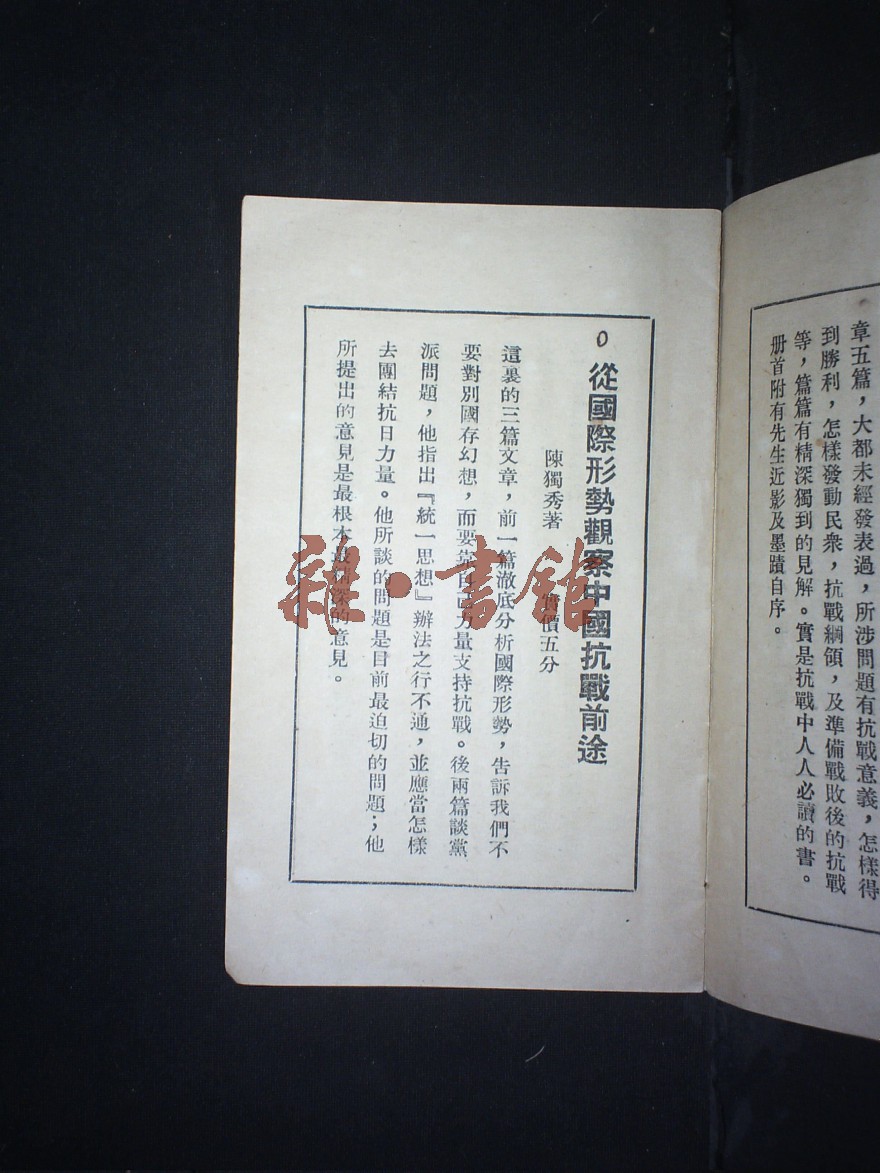 章五篇，大都未經發表過，所涉問題有抗戰意義，怎樣得
到勝利，怎樣發動民衆，抗戰綱領，及準備戰敗後的抗戰
等，篇篇有精深獨到的見解。實是抗戰中人人必讀的書。
册首附有先生近影及墨蹟自序。
從國際形勢觀察中國抗戰前途
陳獨秀著 實價五分
這裏的三篇文章，前一篇澈底分析國際形勢，告訴我們不
要對別國存幻想，而要靠自己力量支持抗戰。後兩篇談黨
派問題，他指出『統一思想』辦法之行不通，並應當怎樣
去團結抗日力量。他所談的問題是目前最迫切的問題；他
所提出的意見是最根本最精深的意見。
雜·書館